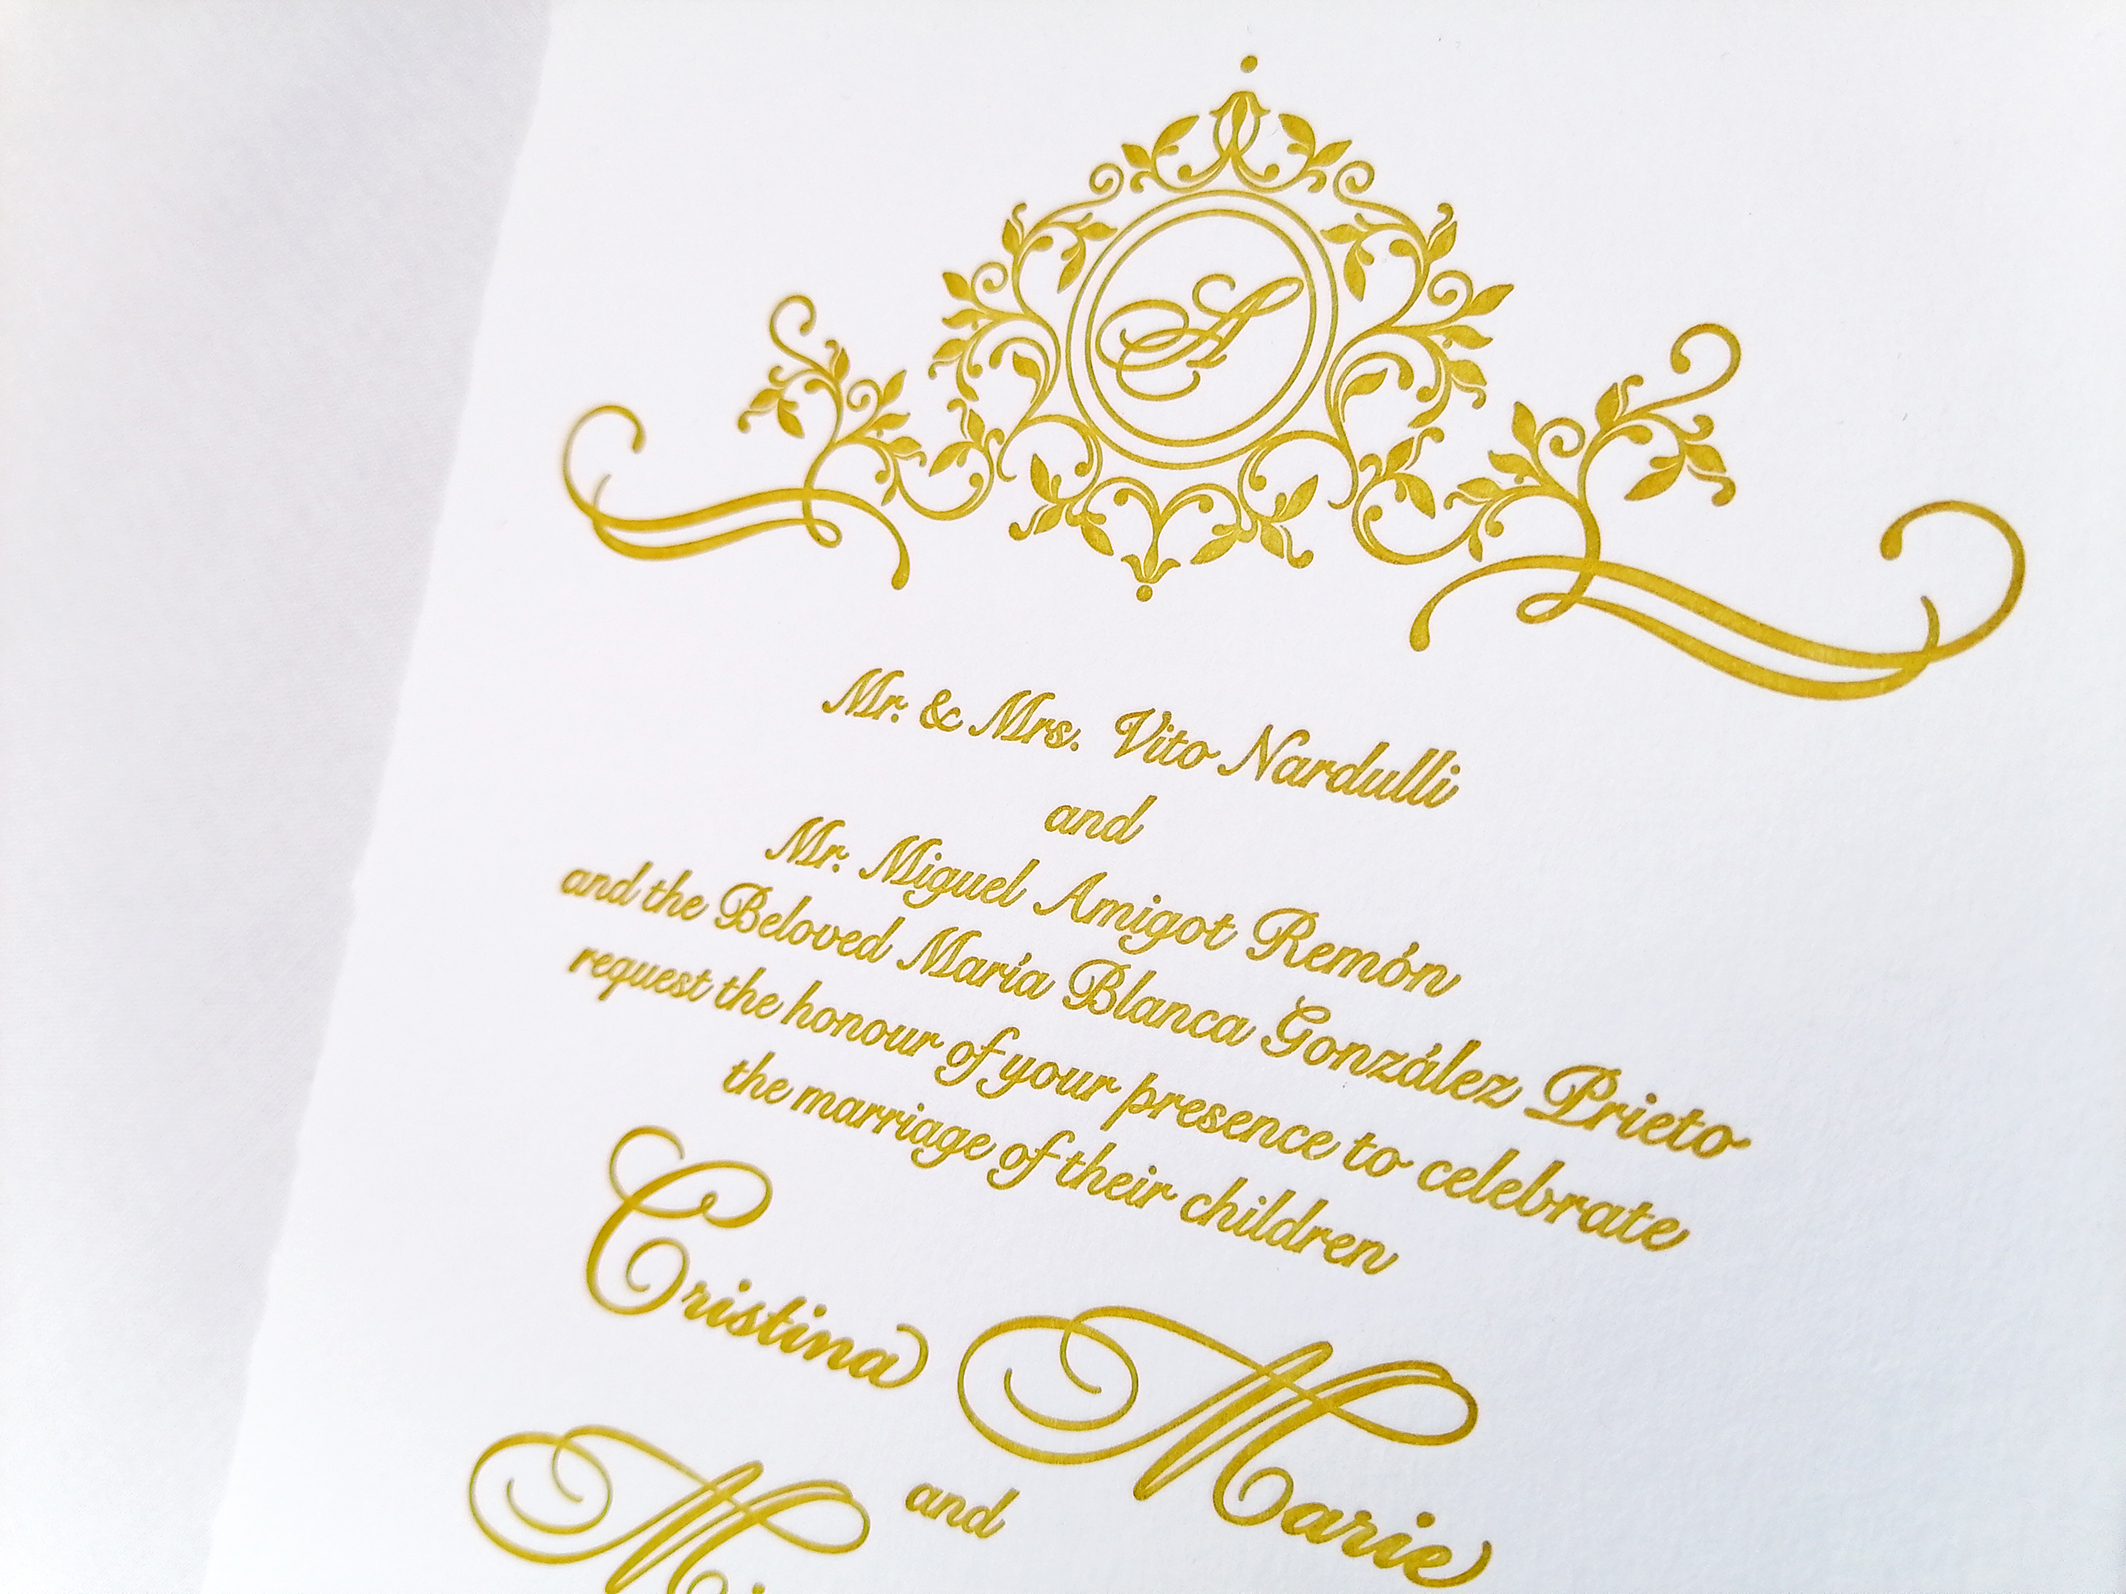 A
Mr. & Mrs. Vito Nardulli
and
Mr. Miguel Amigot Remón
and the Beloved María Blanca González Prieto
request the honour of your presence to celebrate
the marriage of their children
Cristina Marie
and